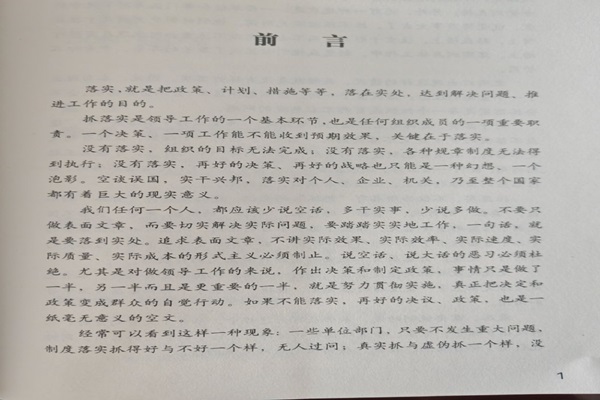 前 言
落实,就是把政策、计划、措施等等,落在实处,达到解决问题、推
进工作的目的。
抓落实是领导工作的一个基本环节,也是任何组织成员的一项重要职
责。一个决策、一项工作能不能收到预期效果,关键在于落实。
没有落实,组织的目标无法完成;没有落实,各种规章制度无法得
到执行;没有落实,再好的决策、再好的战略也只能是一种幻想、一个
泡影。空谈误国,实干兴邦,落实对个人、企业、机关,乃至整个国家
都有着巨大的现实意义。
我们任何一个人,都应该少说空话,多干实事,少说多做。不要只
做表面文章,而要切实解决实际问题,要踏踏实实地工作,一句话,就
是要落到实处。追求表面文章,不讲实际效果、实际效率、实际速度、实
际质量、实际成本的形式主义必须制止。说空话、说大话的恶习必须杜
绝。尤其是对做领导工作的来说,作出决策和制定政策,事情只是做了
一半,另一半而且是更重要的一半,就是努力贯彻实施,真正把决定和
政策变成群众的自觉行动。如果不能落实,再好的决议、政策,也是一
纸毫无意义的空文。
经常可以看到这样一种现象:一些单位部门,只要不发生重大问题,
制度落实抓得好与不好一个样,无人过问;真实抓与虚伪抓一个样,没
1